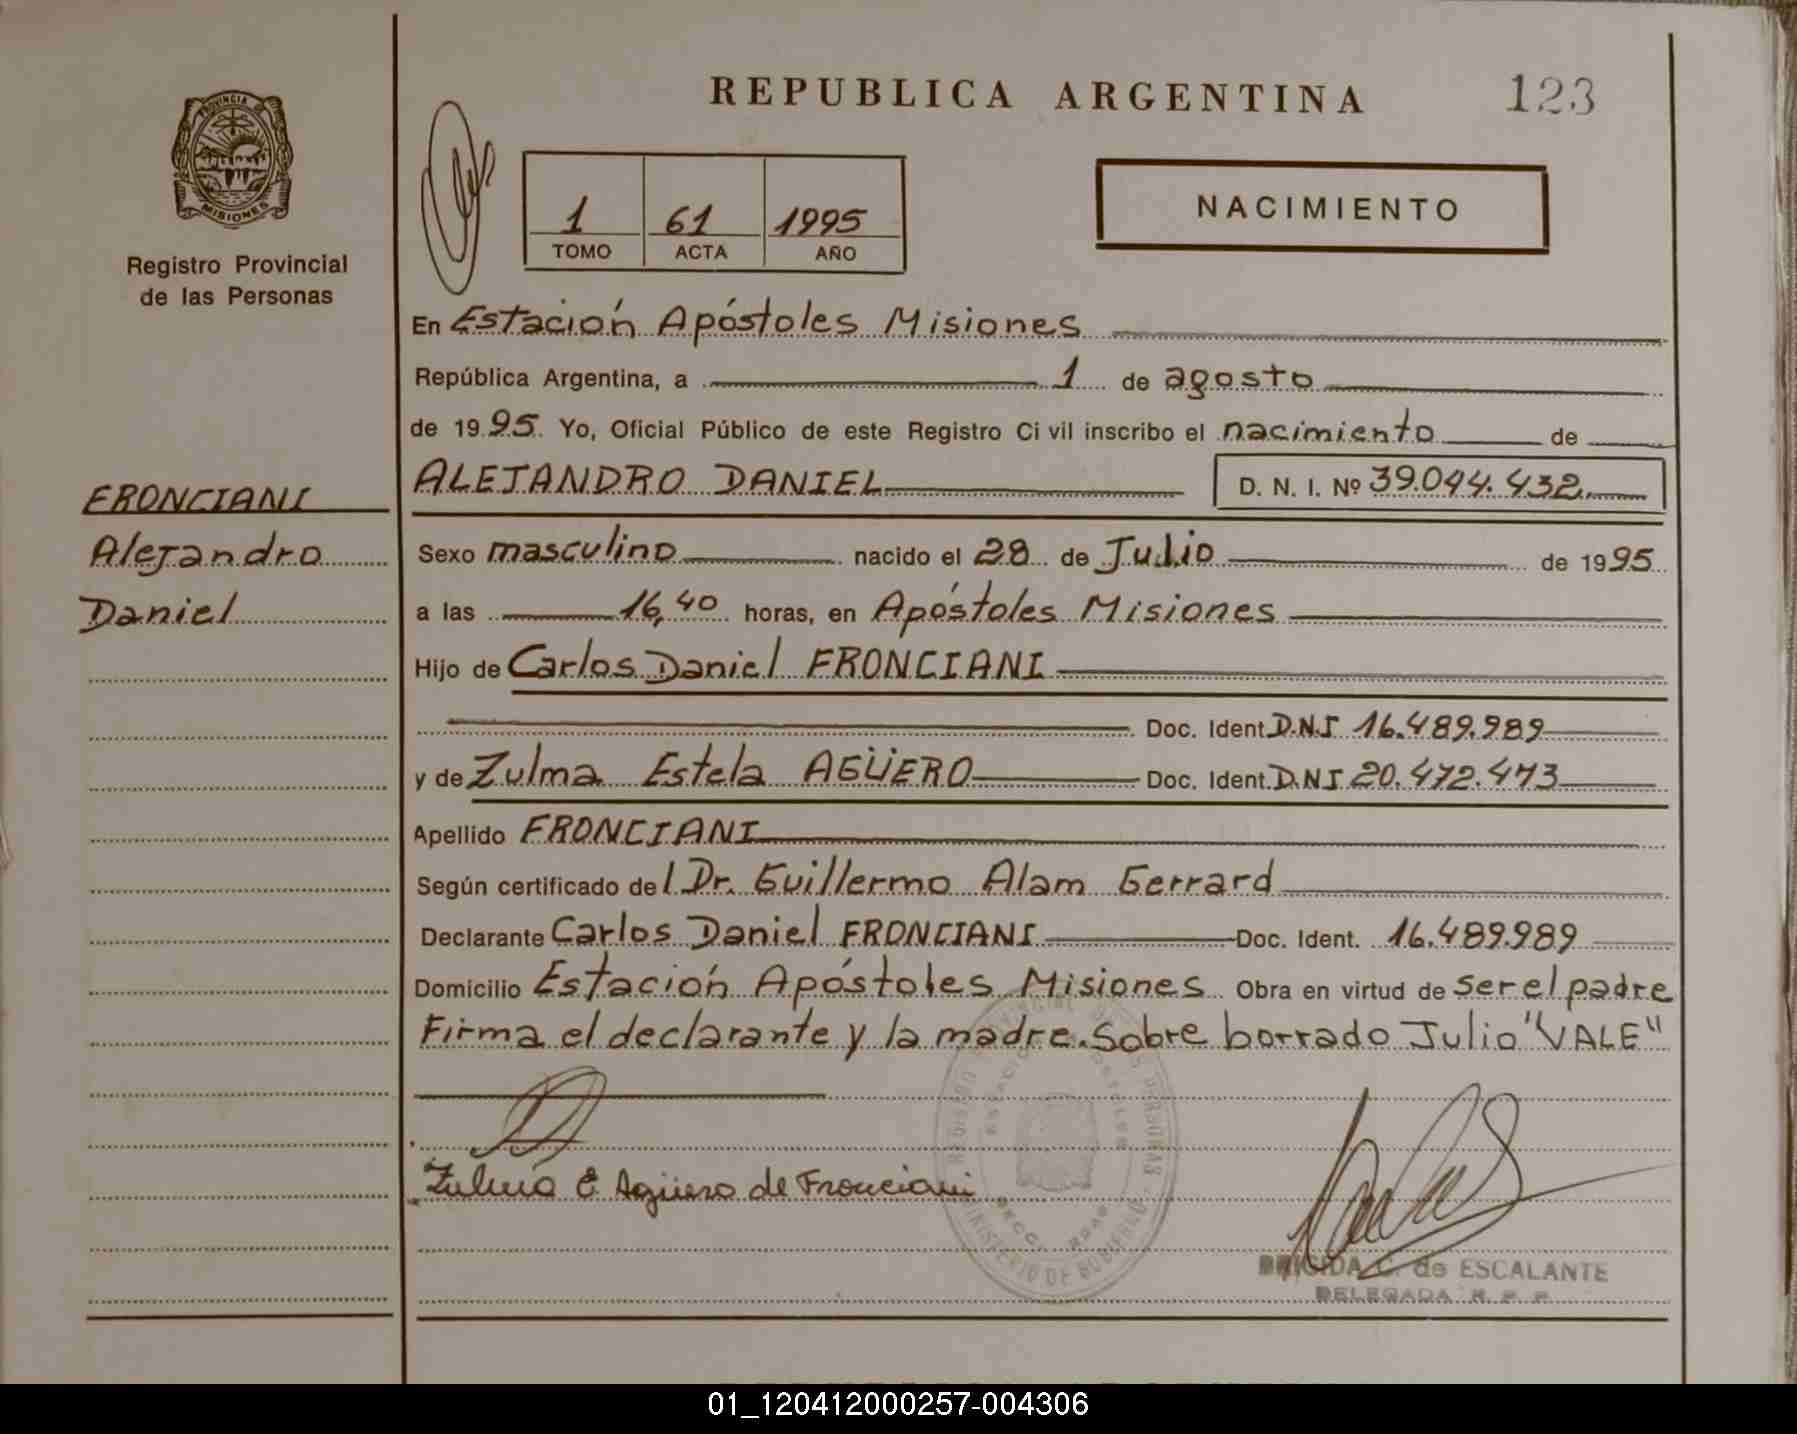 REPUBLICA ARGENTINA
123
PROVINCIA DE
MISIONES
Registro Provincial
de las Personas
1 61 1995
TOMO ACTA AÑO
NACIMIENTO
En Estación Apóstoles Misiones
República Argentina, a 1 de agosto
de 1995. Yo, Oficial Público de este Registro Civil inscribo el nacimiento de
ALEJANDRO DANIEL D. N. I. Nº 39.044.432
FRONCIANI
Alejandro
Daniel
Sexo masculino nacido el 28 de Julio de 1995
a las 16,40 horas, en Apóstoles Misiones
Hijo de Carlos Daniel FRONCIANI
Doc. Ident. D.N.I 16.489.989
y de Zulma Estela AGÜERO Doc. Ident. D.N.I 20.472.473
Apellido FRONCIANI
Según certificado del Dr. Guillermo Alam Gerrard
Declarante Carlos Daniel FRONCIANI Doc. Ident. 16.489.989
Domicilio Estación Apóstoles Misiones Obra en virtud de ser el padre
Firma el declarante y la madre. Sobre borrado Julio "VALE"
Zulma E Agüero de Fronciani
MINISTERIO DE GOBIERNO
BRIGIDA C. de ESCALANTE
DELEGADA R. P. P.
01_120412000257-004306